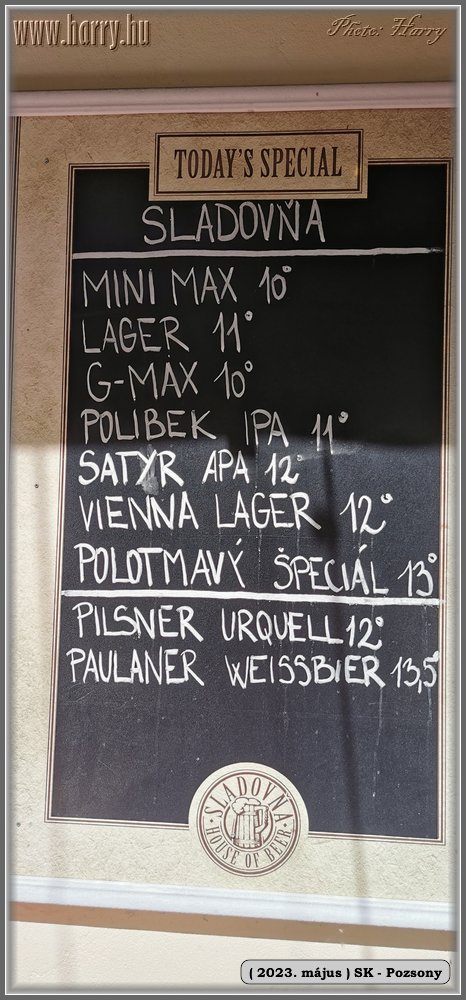 www.harry.hu
Photo: Harry
TODAY'S SPECIAL
SLADOVŇA
MINI MAX 10°
LAGER 11°
G-MAX 10°
POLIBEK IPA 11°
SATYR APA 12°
VIENNA LAGER 12°
POLOTMAVÝ ŠPECIÁL 13°
PILSNER URQUELL 12°
PAULANER WEISSBIER 13,5°
SLADOVŇA
HOUSE OF BEER
( 2023. május ) SK - Pozsony